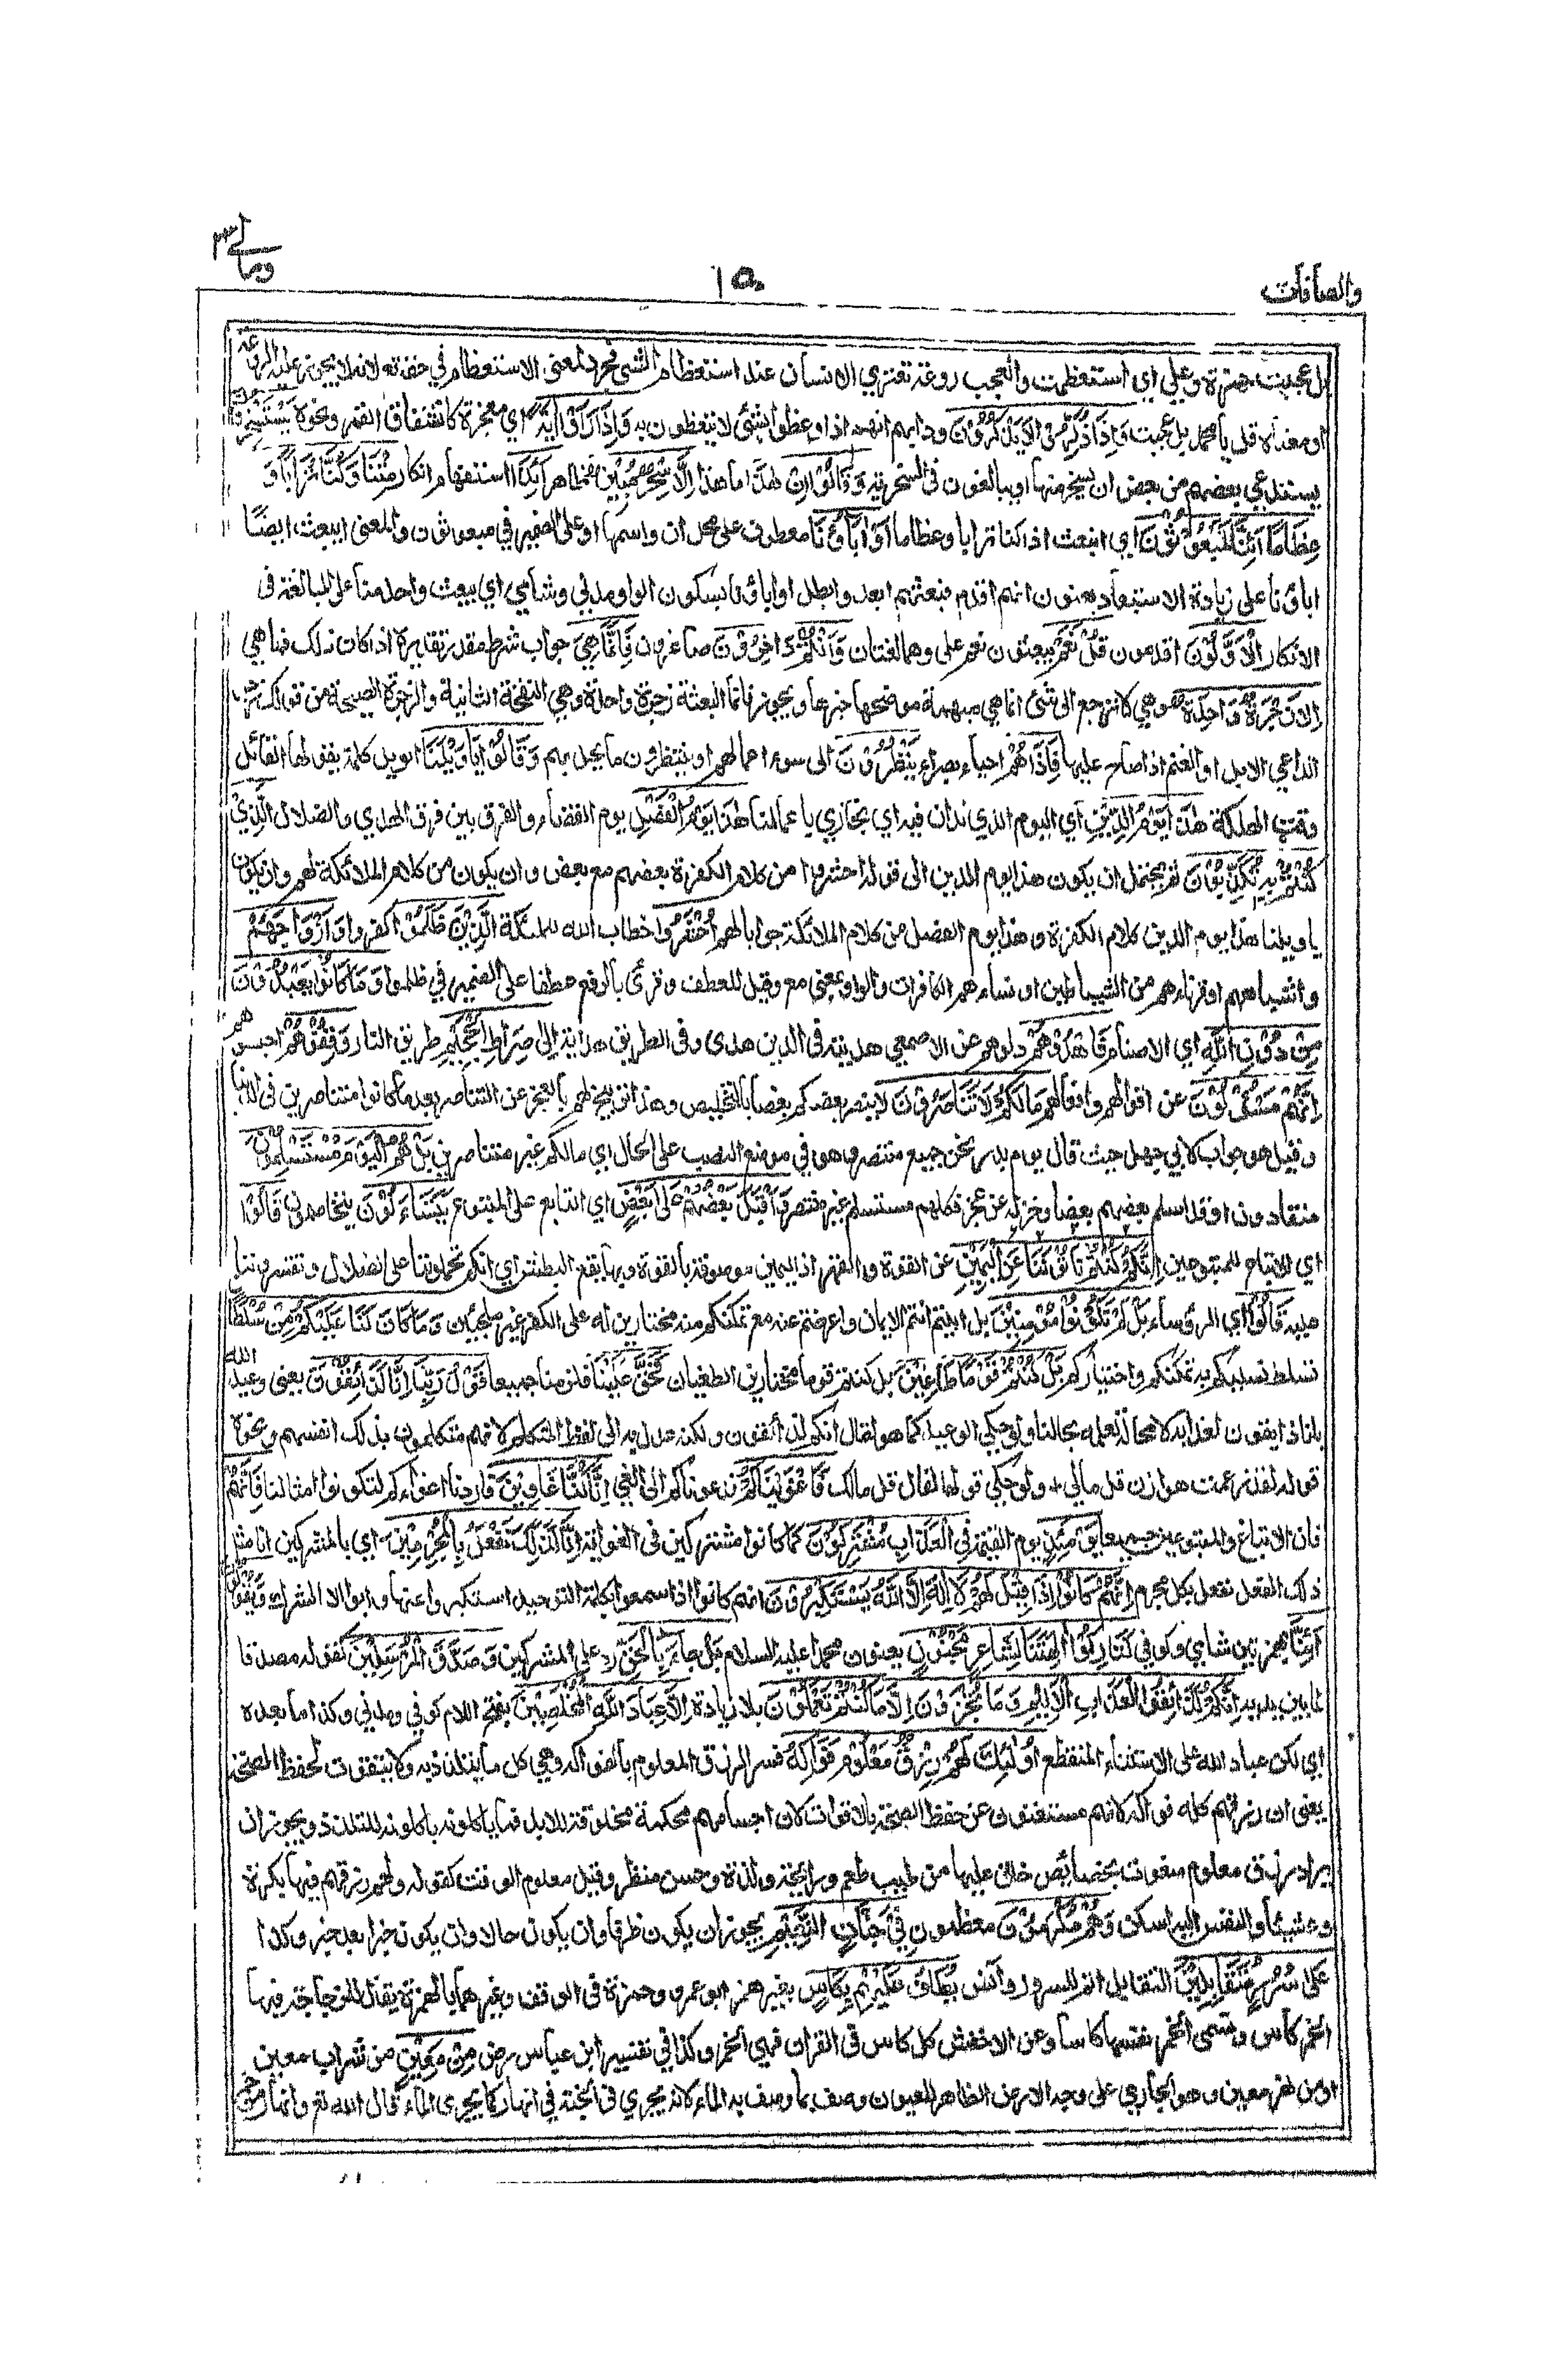 والصافات
١٥
ومالي ٢٣
بل عجبت حمزة وعلي اي استعظمت والعجب روعة تعتري الانسان عند استعظام الشئ فجرد لمعنى الاستعظام في حقه تعه لانه لا يجوز عليه الروعة
او معناه قل يا محمد بل عجبت وَاِذَا ذُكِّرُوْا لَا يَذْكُرُوْنَ ودابهم انهم اذا وعظوا بشئ لا يتعظون به وَاِذَا رَاَوْا اٰيَةً اي معجزة كانشقاق القمر ونحوه يَسْتَسْخِرُوْنَ
يستدعي بعضهم من بعض ان يسخر منها او يبالغون في السخرية وَقَالُوْا اِنْ هٰذَا ما هذا اِلَّا سِحْرٌ مُّبِيْنٌ ظاهر ءَاِذَا استفهام انكار مِتْنَا وَكُنَّا تُرَابًا وَ
عِظَامًا ءَاِنَّا لَمَبْعُوْثُوْنَ اي انبعث اذا كنا ترابا وعظاما اَوَ اٰبَاؤُنَا معطوف على محل ان واسمها او على الضمير في مبعوثون والمعنى ايبعث ايضًا
اباؤنا على زيادة الاستبعاد يعنون انهم اقدم فبعثهم ابعد وابطل او اباؤنا بسكون الواو مدني وشامي اي يبعث واحد منا على المبالغة فى
الانكار الْاَوَّلُوْنَ اقدمون قُلْ نَعَمْ تبعثون نعم علي وهما لغتان وَاَنْتُمْ دَاخِرُوْنَ صاغرون فَاِنَّمَا هِيَ جواب شرط مقدر تقديره اذا كان ذلك فما هي
الا زَجْرَةٌ وَّاحِدَةٌ وهي لا ترجع الى شئ انما هي مبهمة موضحها خبرها ويجوز فانما البعثة زجرة واحدة وهي النفخة الثانية والزجرة الصيحة من قولك زجر
الداعي الابل او الغنم اذا صاح عليها فَاِذَا هُمْ احياء بصراء يَنْظُرُوْنَ الى سوء اعمالهم او ينتظرون ما يحل بهم وَقَالُوْا يَا وَيْلَنَا الويل كلمة يقولها القائل
وقت الهلكة هٰذَا يَوْمُ الدِّيْنِ اي اليوم الذي ندان فيه اي نجازي باعمالنا هٰذَا يَوْمُ الْفَصْلِ يوم القضاء والفرق بين فرق الهدي والضلال الَّذِيْ
كُنْتُمْ بِهٖ تُكَذِّبُوْنَ ثم يحتمل ان يكون هذا يوم الدين الى قوله احشروا من كلام الكفرة بعضهم مع بعض وان يكون من كلام الملائكة لهم وان يكون
يا ويلنا هذا يوم الدين كلام الكفرة وهذا يوم الفصل من كلام الملائكة جوابا لهم اُحْشُرُوا خطاب الله للملئكة الَّذِيْنَ ظَلَمُوْا كفروا وَاَزْوَاجَهُمْ
واشباههم او قرناءهم من الشياطين او نساءهم الكافرات والواو بمعنى مع وقيل للعطف وقرئ بالرفع عطفا على الضمير في ظلموا وَمَا كَانُوْا يَعْبُدُوْنَ
مِنْ دُوْنِ اللّٰهِ اي الاصنام فَاهْدُوْهُمْ دلوهم عن الاصمعي هديته في الدين هدى وفى الطريق هداية اِلٰى صِرَاطِ الْجَحِيْمِ طريق النار وَقِفُوْهُمْ احبسوهم
اِنَّهُمْ مَسْئُوْلُوْنَ عن اقوالهم وافعالهم مَالَكُمْ لَا تَنَاصَرُوْنَ لا ينصر بعضكم بعضا بالتخليص وهذا توبيخ لهم بالعجز عن التناصر بعد ما كانوا متناصرين فى الدنيا
وقيل هو جواب لابي جهل حيث قال يوم بدر نحن جميع منتصر وهو في موضع النصب على الحال اي مالكم غير متناصرين بَلْ هُمُ الْيَوْمَ مُسْتَسْلِمُوْنَ
منقادون او قد اسلم بعضهم بعضا وخذله عن عجز فكلهم مستسلم غير منتصر وَاَقْبَلَ بَعْضُهُمْ عَلٰى بَعْضٍ اي التابع على المتبوع يَتَسَاءَلُوْنَ يتخاصمون قَالُوْا
اي الاتباع للمتبوعين اِنَّكُمْ كُنْتُمْ تَاْتُوْنَنَا عَنِ الْيَمِيْنِ عن القوة والقهر اذ اليمين موصوفة بالقوة وبها يقع البطش اي انكم تحملوننا على الضلال وتقسروننا
عليه قَالُوْا اي الرؤساء بَلْ لَمْ تَكُوْنُوْا مُؤْمِنِيْنَ بل ابيتم انتم الايمان واعرضتم عنه مع تمكنكم منه مختارين له على الكفر غير ملجئين وَمَا كَانَ لَنَا عَلَيْكُمْ مِّنْ سُلْطٰنٍ
تسلط نسلبكم به تمكنكم واختياركم بَلْ كُنْتُمْ قَوْمًا طٰغِيْنَ بل كنتم قوما مختارين الطغيان فَحَقَّ عَلَيْنَا فلزمنا جميعا قَوْلُ رَبِّنَا اِنَّا لَذَائِقُوْنَ يعني وعيد الله
بانا ذايقون لعذابه لا محالة لعلمه بحالنا ولو حكي الوعيد كما هو لقال انكم لذائقون ولكنه عدل به الى لفظ المتكلم لانهم متكلمون بذلك انفسهم ونحوه
قوله لقد زعمت هوازن قل مالي + ولو حكي قولها لقال قل مالك فَاَغْوَيْنَاكُمْ فدعوناكم الى الغي اِنَّا كُنَّا غَاوِيْنَ فاردنا اغواءكم لتكونوا امثالنا فَاِنَّهُمْ
فان الاتباع والمتبوعين جميعا يَوْمَئِذٍ يوم القيمة فِي الْعَذَابِ مُشْتَرِكُوْنَ كما كانوا مشتركين فى الغواية اِنَّا كَذٰلِكَ نَفْعَلُ بِالْمُجْرِمِيْنَ اي بالمشركين انا مثل
ذلك الفعل نفعل بكل مجرم اِنَّهُمْ كَانُوْا اِذَا قِيْلَ لَهُمْ لَا اِلٰهَ اِلَّا اللّٰهُ يَسْتَكْبِرُوْنَ انهم كانوا اذا سمعوا بكلمة التوحيد استكبروا عنها وابوا الا الشرك وَيَقُوْلُوْنَ
اَئِنَّا بهمزتين شامي وكوفي لَتَارِكُوْا اٰلِهَتِنَا لِشَاعِرٍ مَّجْنُوْنٍ يعنون محمدا عليه السلام بَلْ جَاءَ بِالْحَقِّ رد على المشركين وَصَدَّقَ الْمُرْسَلِيْنَ كقوله مصدقا
لما بين يديه اِنَّكُمْ لَذَائِقُوا الْعَذَابِ الْاَلِيْمِ وَمَا تُجْزَوْنَ اِلَّا مَا كُنْتُمْ تَعْمَلُوْنَ بلا زيادة اِلَّا عِبَادَ اللّٰهِ الْمُخْلَصِيْنَ بفتح اللام كوفي ومدني وكذا ما بعده
اي لكن عباد الله على الاستثناء المنقطع اُولٰئِكَ لَهُمْ رِزْقٌ مَّعْلُوْمٌ فَوَاكِهُ فسر الرزق المعلوم بالفواكه وهي كل ما يتلذذ به ولا يتقوت لحفظ الصحة
يعني ان رزقهم كله فواكه لانهم مستغنون عن حفظ الصحة بالاقوات لان اجسامهم محكمة مخلوقة للابد فما ياكلونه ياكلونه للتلذذ ويجوز ان
يراد رزق معلوم منعوت بخصائص خلق عليها من طيب طعم ورايحة ولذة وحسن منظر وقيل معلوم الوقت كقوله ولهم رزقهم فيها بكرة
وعشيا والنفس اليه اسكن وَهُمْ مُكْرَمُوْنَ معظمون فِيْ جَنّٰتِ النَّعِيْمِ يجوز ان يكون ظرفا وان يكون حالا وان يكون خبرا بعد خبر وكذا
عَلٰى سُرُرٍ مُّتَقَابِلِيْنَ التقابل اتم للسرور وآنس يُطَافُ عَلَيْهِمْ بِكَاسٍ بغير همز ابو عمرو وحمزة فى الوقف وغيرهما بالهمزة يقال للزجاجة فيها
الخمر كأس وتسمى الخمر نفسها كاسا وعن الاخفش كل كاس فى القران فهي الخمر وكذا في تفسير ابن عباس رض مِنْ مَعِيْنٍ من شراب معين
او من نهر معين وهو الجاري على وجه الارض الظاهر للعيون وصف بما وصف به الماء لانه يجري فى الجنة في انهار كما يجرى الماء قال الله تع وانهار من خمر